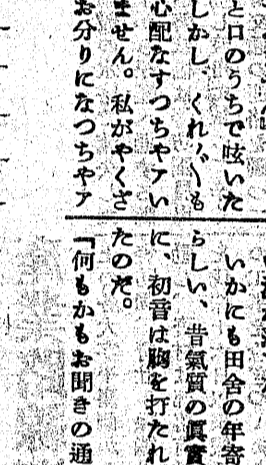 と口のうちで呟いた
しかし、くれ〴〵も
心配なすつちやアい
ません。私がやくざ
お分りになつちやア
いかにも田舎の年寄
らしい、昔氣質の眞實
に、初音は胸を打たれ
たのだ。
「何もかもお聞きの通